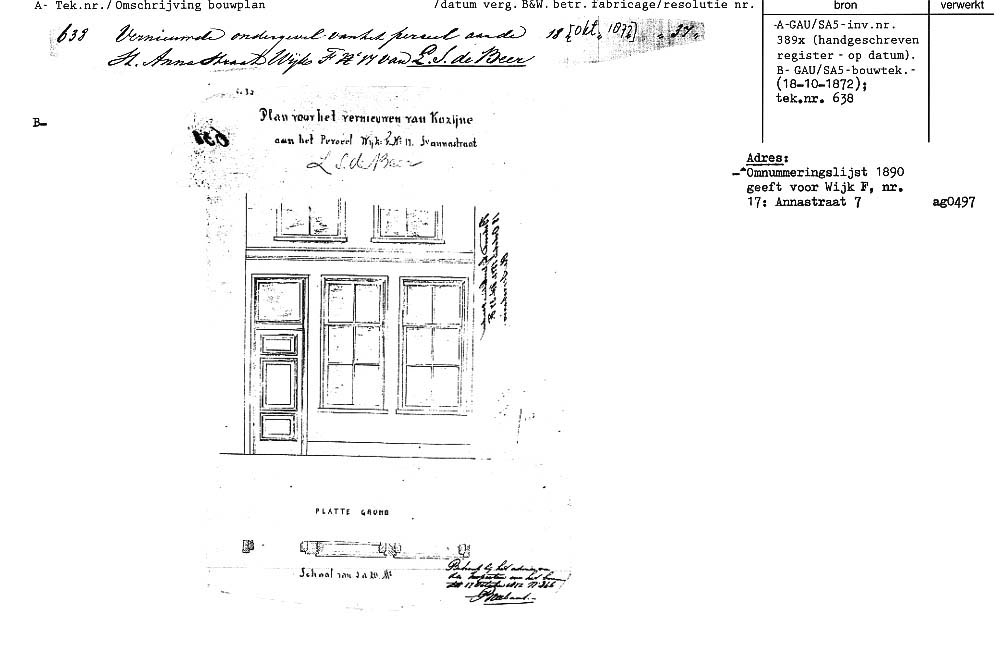 A- Tek.nr./Omschrijving bouwplan /datum verg. B&W. betr. fabricage/resolutie nr. bron verwerkt
633 Vernieuwde ondergevel van het perceel aan de 18 [Okt. 1872]
St. Anna Straat Wijk F No 17 van L. S. de Beer
-A-GAU/SA5-inv.nr.
389x (handgeschreven
register - op datum).
B- GAU/SA5-bouwtek.-
(18-10-1872);
tek.nr. 638
B-
Plan voor het vernieuwen van Kozijne
aan het Perceel Wijk: F No 17. St annastraat
L S. de Beer
Adres:
-"Omnummeringslijst 1890
geeft voor Wijk F, nr.
17: Annastraat 7 ag0497
PLATTE GROND
Schaal van 1 a 20. Mr
Behoort bij het